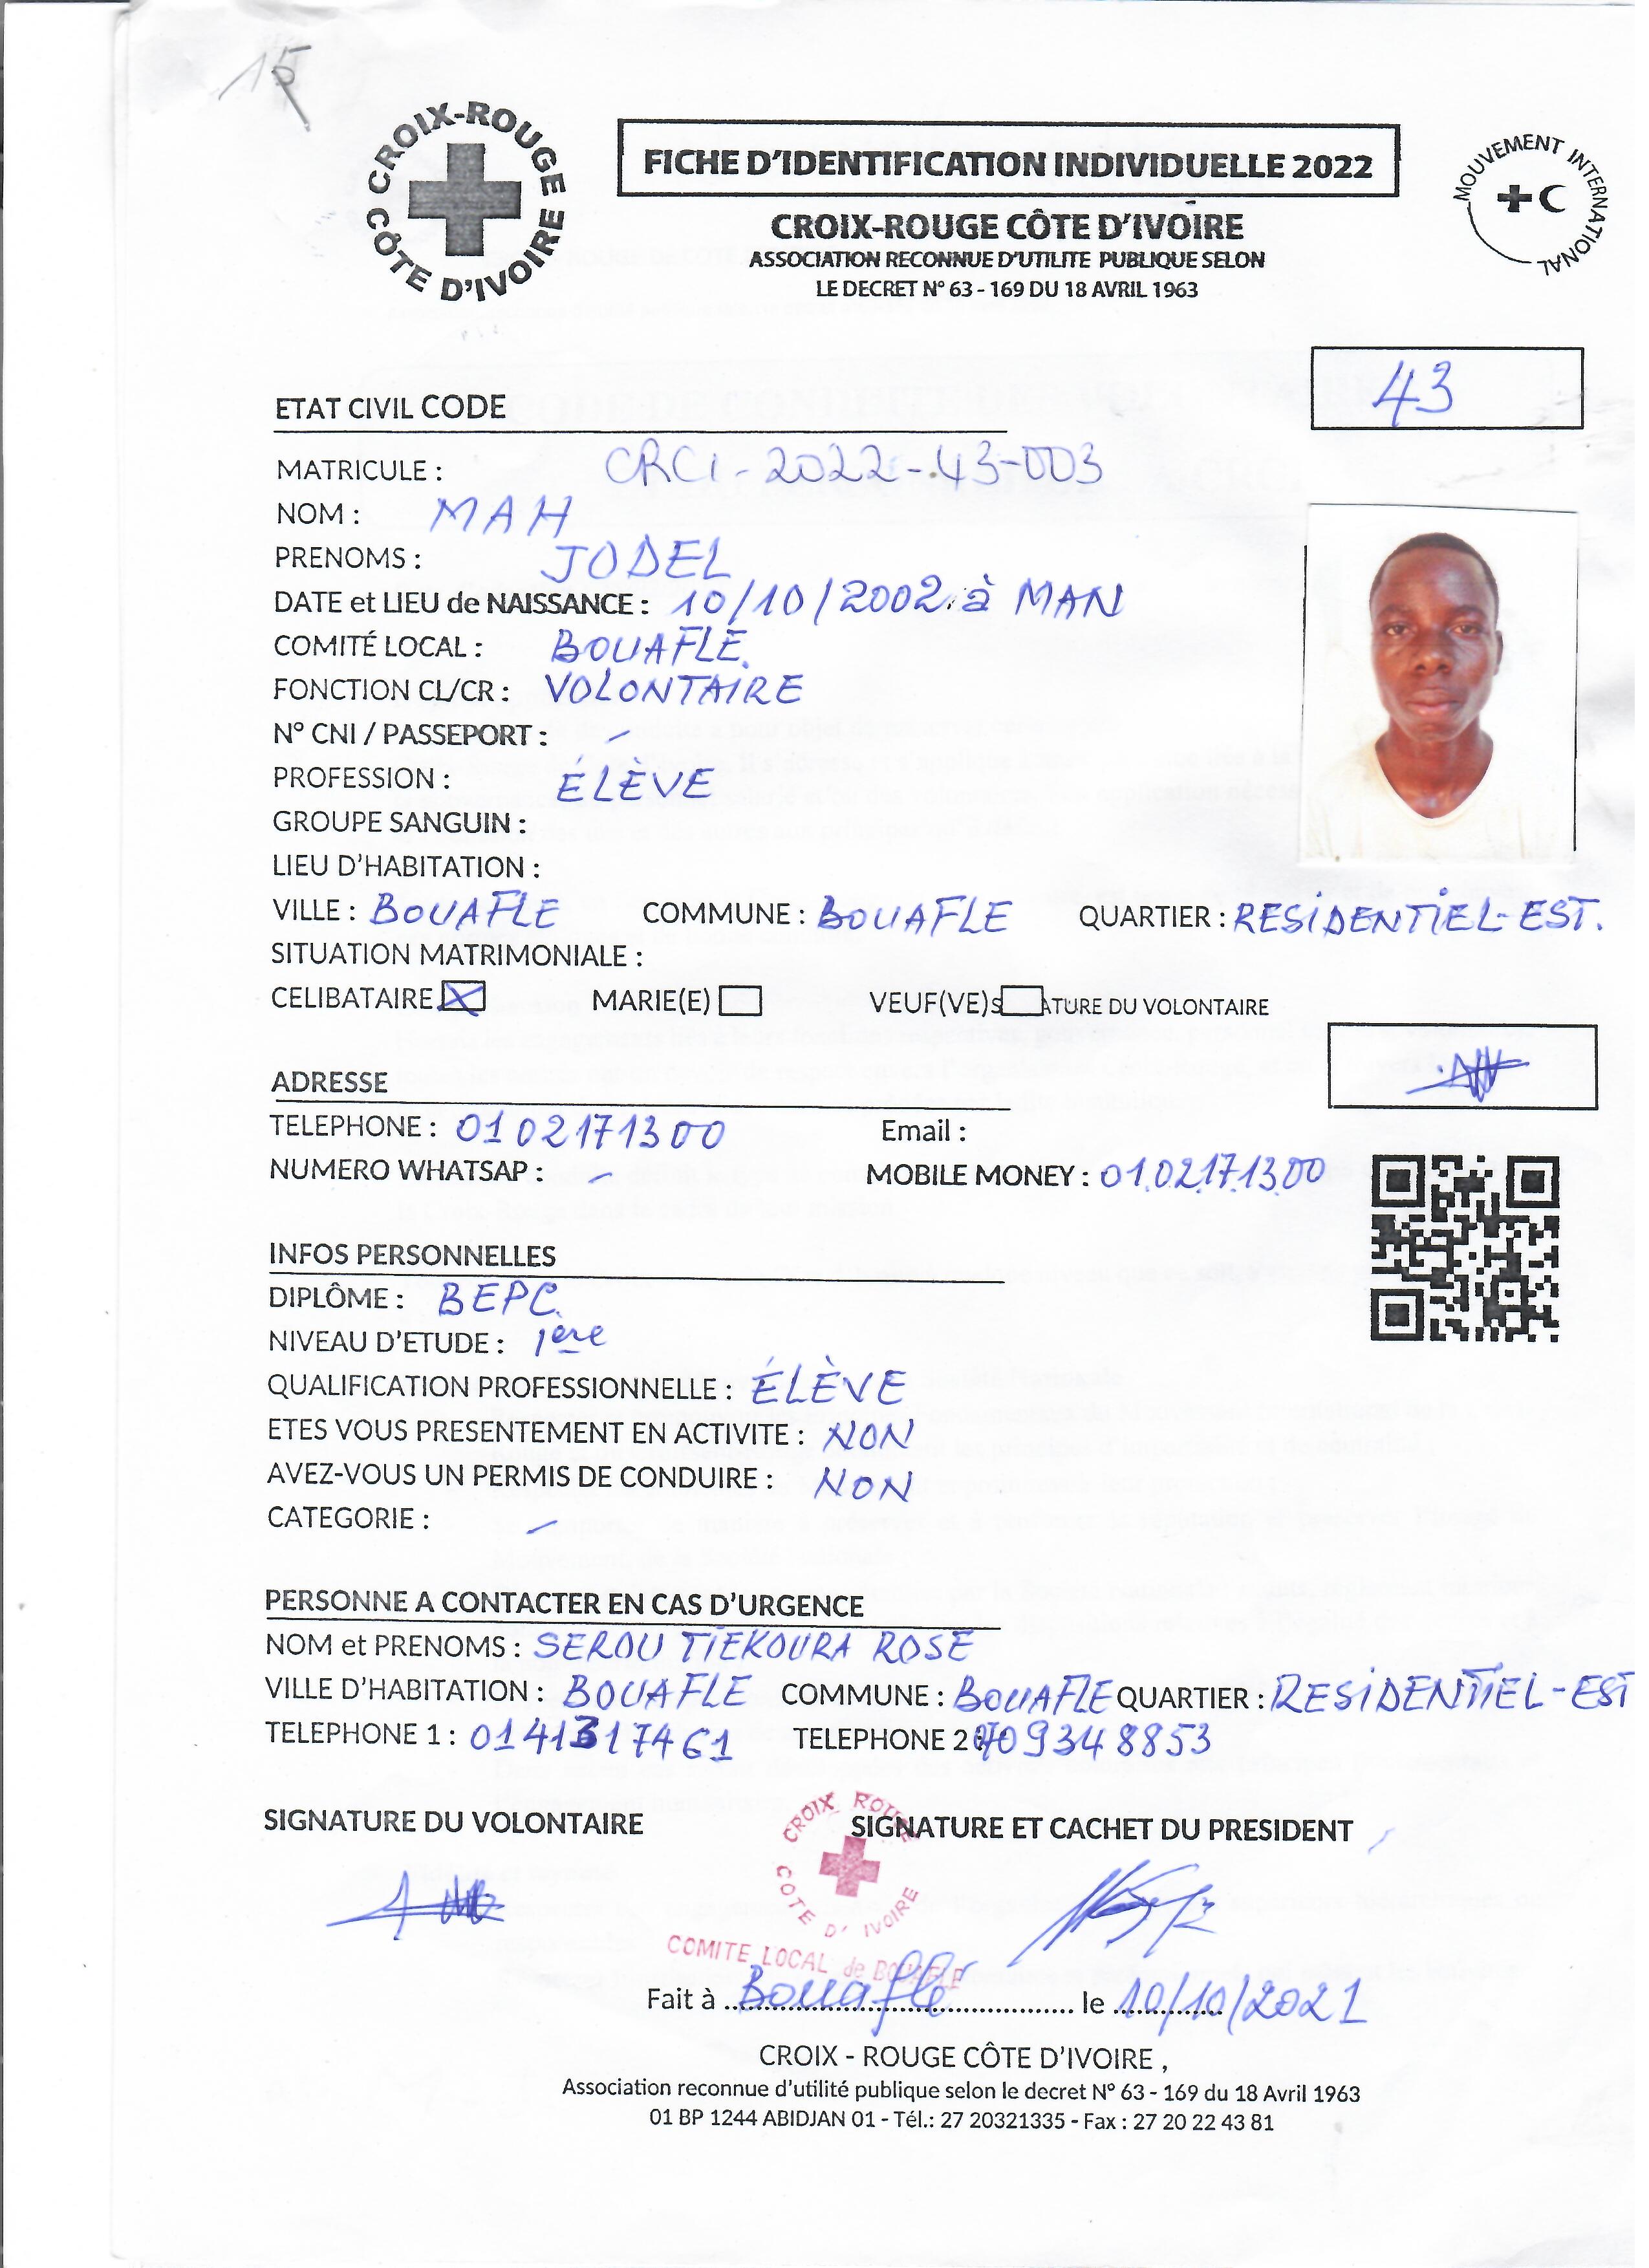 15
CROIX-ROUGE CÔTE D'IVOIRE
FICHE D'IDENTIFICATION INDIVIDUELLE 2022
MOUVEMENT INTERNATIONAL
CROIX-ROUGE CÔTE D'IVOIRE
ASSOCIATION RECONNUE D'UTILITE PUBLIQUE SELON
LE DECRET N° 63 - 169 DU 18 AVRIL 1963
43
ETAT CIVIL CODE
MATRICULE : CRCI-2022-43-003
NOM : MAH
PRENOMS : JODEL
DATE et LIEU de NAISSANCE : 10/10/2002 à MAN
COMITÉ LOCAL : BOUAFLE
FONCTION CL/CR : VOLONTAIRE
N° CNI / PASSEPORT : -
PROFESSION : ÉLÈVE
GROUPE SANGUIN :
LIEU D'HABITATION :
VILLE : BOUAFLE COMMUNE : BOUAFLE QUARTIER : RESIDENTIEL-EST.
SITUATION MATRIMONIALE :
CELIBATAIRE MARIE(E) VEUF(VE) S ATURE DU VOLONTAIRE
ADRESSE
TELEPHONE : 0102171300 Email :
NUMERO WHATSAP : - MOBILE MONEY : 01.02.17.13.00
INFOS PERSONNELLES
DIPLÔME : BEPC
NIVEAU D'ETUDE : 1ère
QUALIFICATION PROFESSIONNELLE : ÉLÈVE
ETES VOUS PRESENTEMENT EN ACTIVITE : NON
AVEZ-VOUS UN PERMIS DE CONDUIRE : NON
CATEGORIE : -
PERSONNE A CONTACTER EN CAS D'URGENCE
NOM et PRENOMS : SEROU TIEKOURA ROSE
VILLE D'HABITATION : BOUAFLE COMMUNE : BOUAFLE QUARTIER : RESIDENTIEL-EST
TELEPHONE 1 : 0141317461 TELEPHONE 2 0709348853
SIGNATURE DU VOLONTAIRE SIGNATURE ET CACHET DU PRESIDENT
CROIX ROUGE COTE D'IVOIRE
COMITE LOCAL de BOUAFLE
Fait à Bouaflé le 10/10/2021
CROIX - ROUGE CÔTE D'IVOIRE ,
Association reconnue d'utilité publique selon le decret N° 63 - 169 du 18 Avril 1963
01 BP 1244 ABIDJAN 01 - Tél.: 27 20321335 - Fax : 27 20 22 43 81